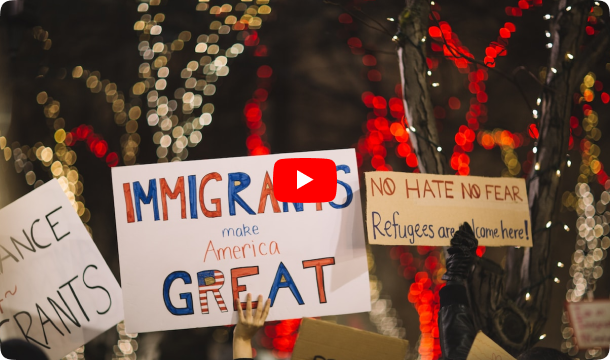 IMMIGRANTS
make
America
GREAT
NO HATE NO FEAR
Refugees are welcome here!